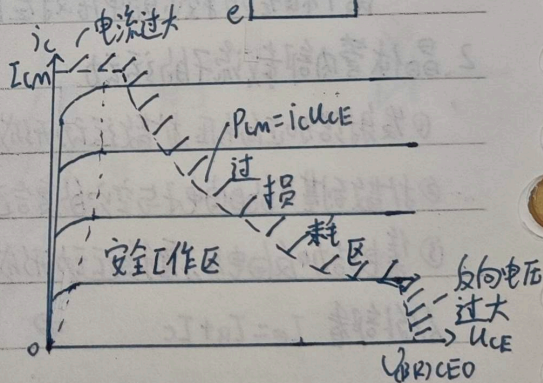 e
ic
电流过大
Icm
Pcm=icUCE
过
损
耗
区
安全工作区
反向电压
过大
UCE
0
U(BR)CEO